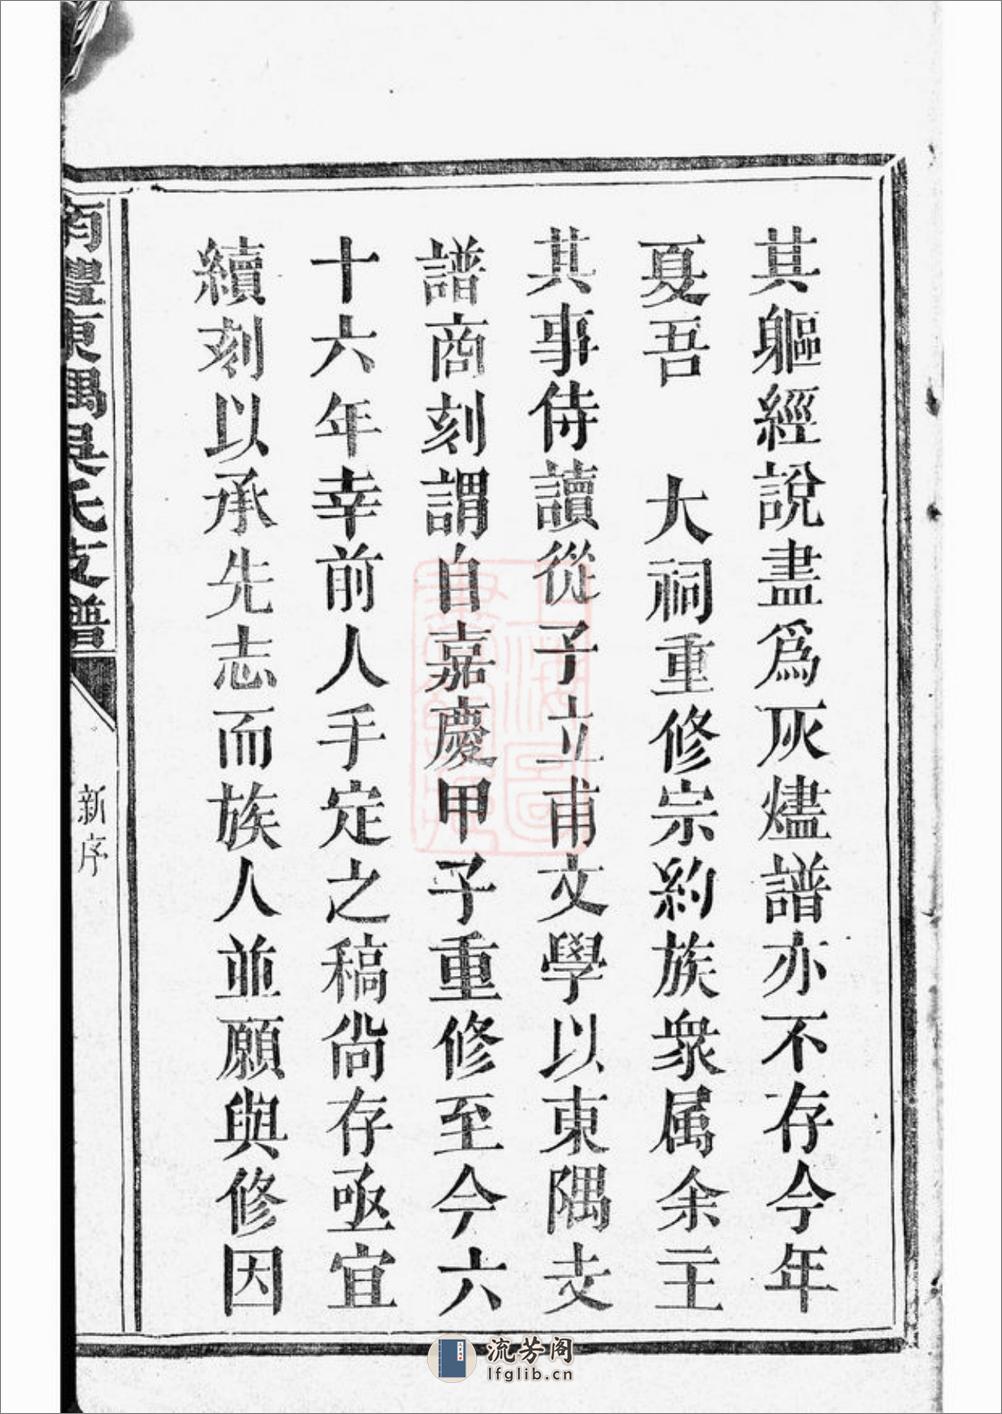 其軀經說盡爲灰燼譜亦不存今年
夏吾　大祠重修宗約族衆属余主
其事侍讀從子立甫文學以東隅支
譜商刻謂自嘉慶甲子重修至今六
十六年幸前人手定之稿尙存亟宜
續刻以承先志而族人並願與修因
南豐東隅吳氏支譜
新序
流芳阁
lfglib.cn